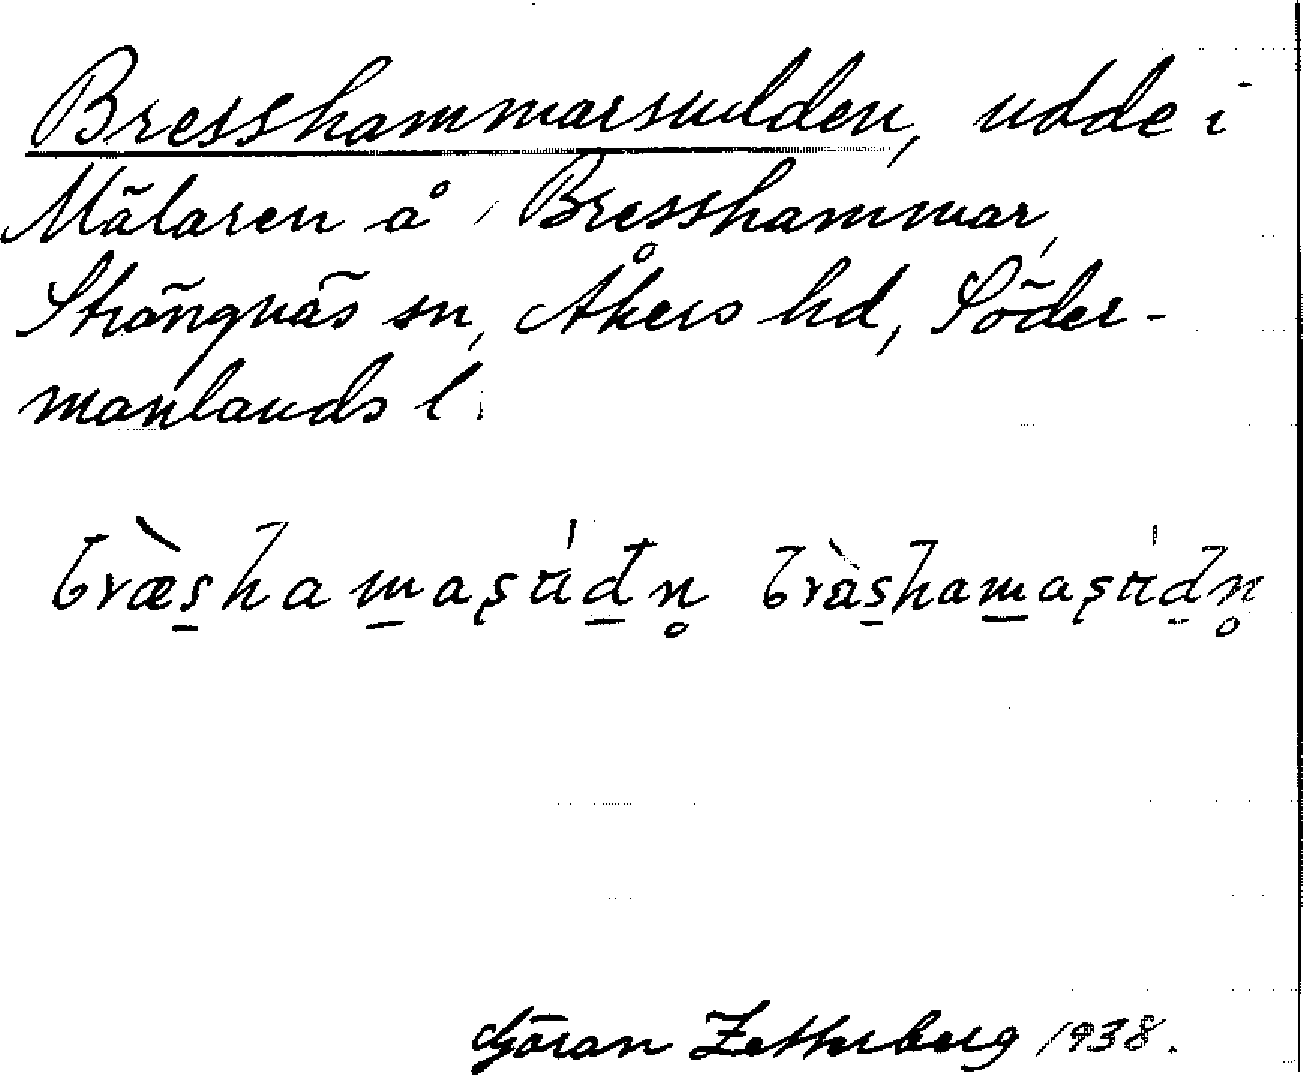 Bresshammarsudden, udde i
Mälaren å Bresshammar,
Strängnäs sn, Åkers hd, Söder-
manlands l.
bræ̀s̱ham̱aşúḏn̥ bràs̱ham̱aşúḏn̥
Göran Zetterberg 1938.